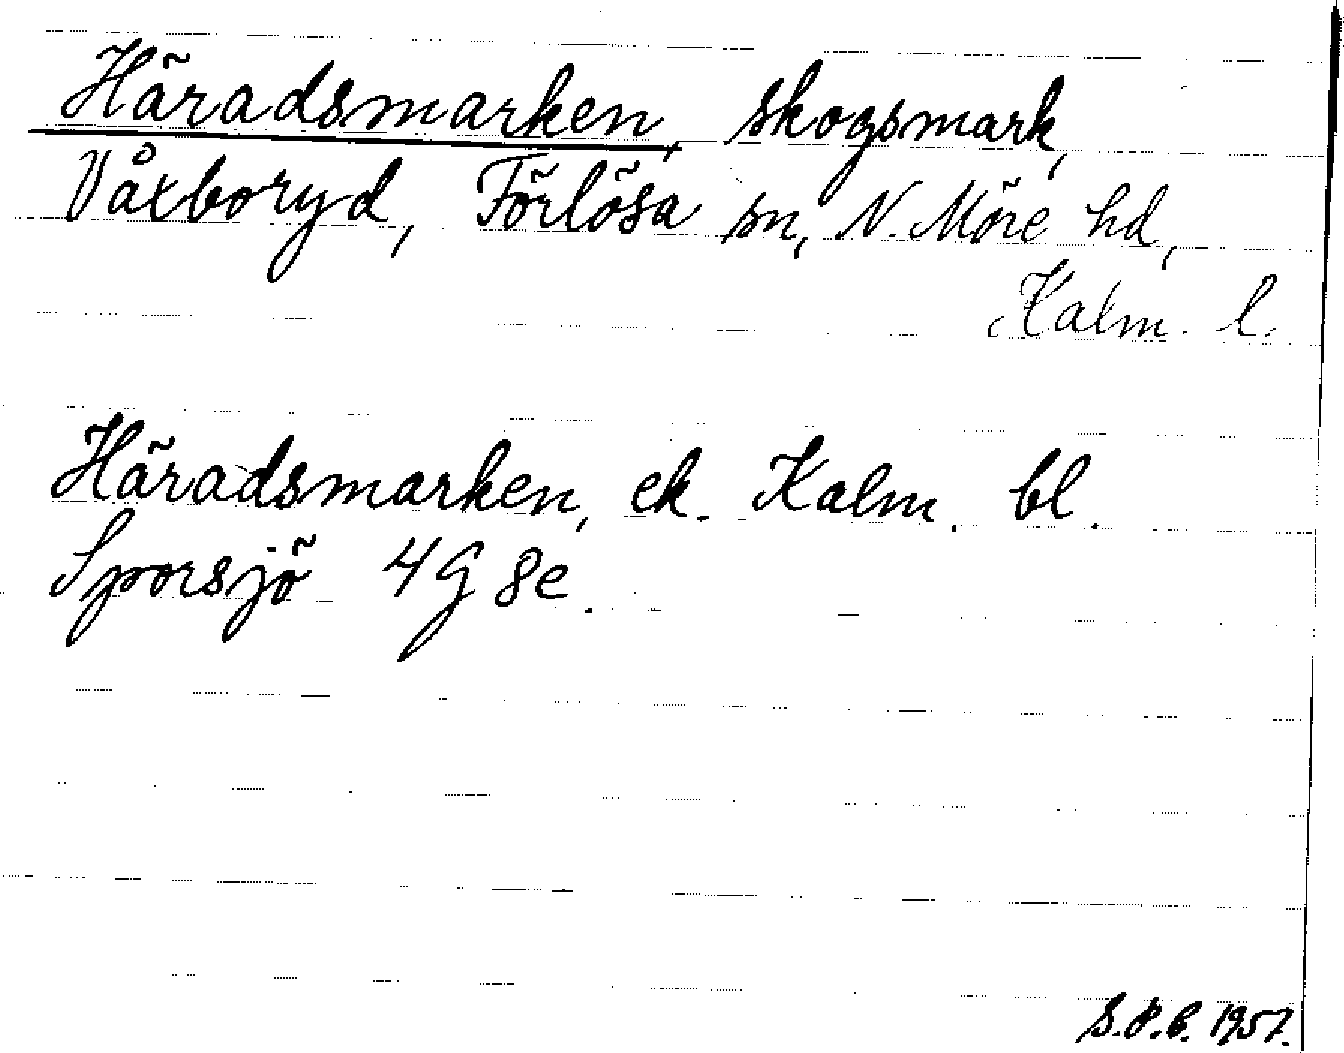 Häradsmarken, skogsmark,
Våxboryd, Förlösa sn, N. Möre hd,
Kalm. l.
Häradsmarken, ek. Kalm. bl.
Sporsjö 4G 8e.
1957.